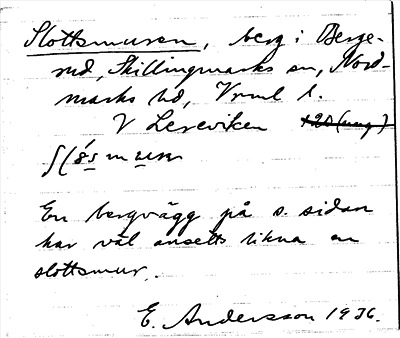 Slottsmuren, berg i Berge-
rud, Skillingmarks sn, Nord-
marks hd, Vrml l.
V Lereviken

En bergvägg på s. sidan
har väl ansetts likna en
slottsmur.
E. Andersson 1936.